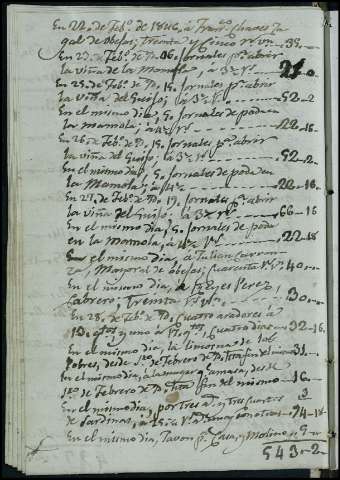 En 22, de Feb.º de 1846, à Fran.co Chaves Za
gal de obejas; Treinta y Cinco r.s v.n 35,,
En 23, de Feb.º de D.º 6, jornales p.ª abrir
la viña de la Mamola, à 3½ r.s 21,,0
En 25, de Feb.º de D.º 15, jornales p.ª abrir
la viña del Guijo; à 3½ r.s 52,,2
En el mismo dia, 5, jornales de poda en
la Mamola; à 4½ r.s 22,,16
En 26, de Feb.º de D.º, 15, jornales p.ª abrir
la viña del Guijo; à 3½ r.s 52,,2
En el mismo dia, 5, jornales de poda en
la Mamola; à 4½ 22,,16
En 27, de Feb.º de D.º 19, jornales p.ª abrir
la viña del Guijo; à 3½ r.s 66,,16
En el mismo dia, 5, jornales de poda
en la Mamola, à 4½ r.s 22,,18
En el mismo dia, à Julian
Mayoral de obejas; cuarenta r.s 40,,
En el mismo dia, à Reyes Perez,
Cabrero; Treinta r.s v.n 30,,0
En 28, de Feb.º de D.º, Cuatro aradores à
y uno à Cuatro dias 32,,16
En el mismo dia, la limosna de los
Pobres, desde 1.º de Febrero de fin del mismo 31,,
En el mismo dia, à la muger desde
1.º de Febrero de fin del mismo 16,,
En el mismo dia, por tres y tres cuartos
de Sardinas, à 74,,18
En el mismo dia, Javon p.ª Casa, y Molino 9,,
543,,2